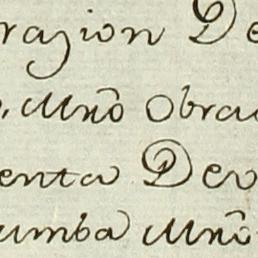 razion De
o, Mrõ Obra
enta Dev
umba Mrõ